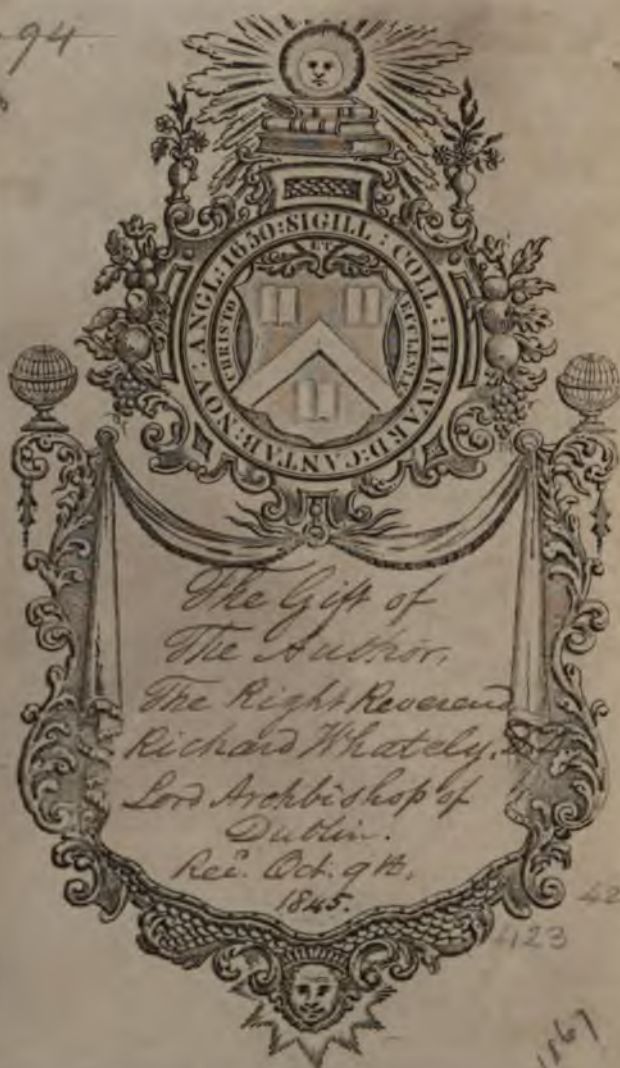 94
SIGILL : COLL : HARVARD: CANTAB: NOV: ANGL: 1650:
CHRISTO ET ECCLESIÆ
The Gift of
The Author,
The Right Reverend
Richard Whately,
Lord Archbishop of
Dublin.
Rec. Oct. 9th,
1845.
42
423
1867